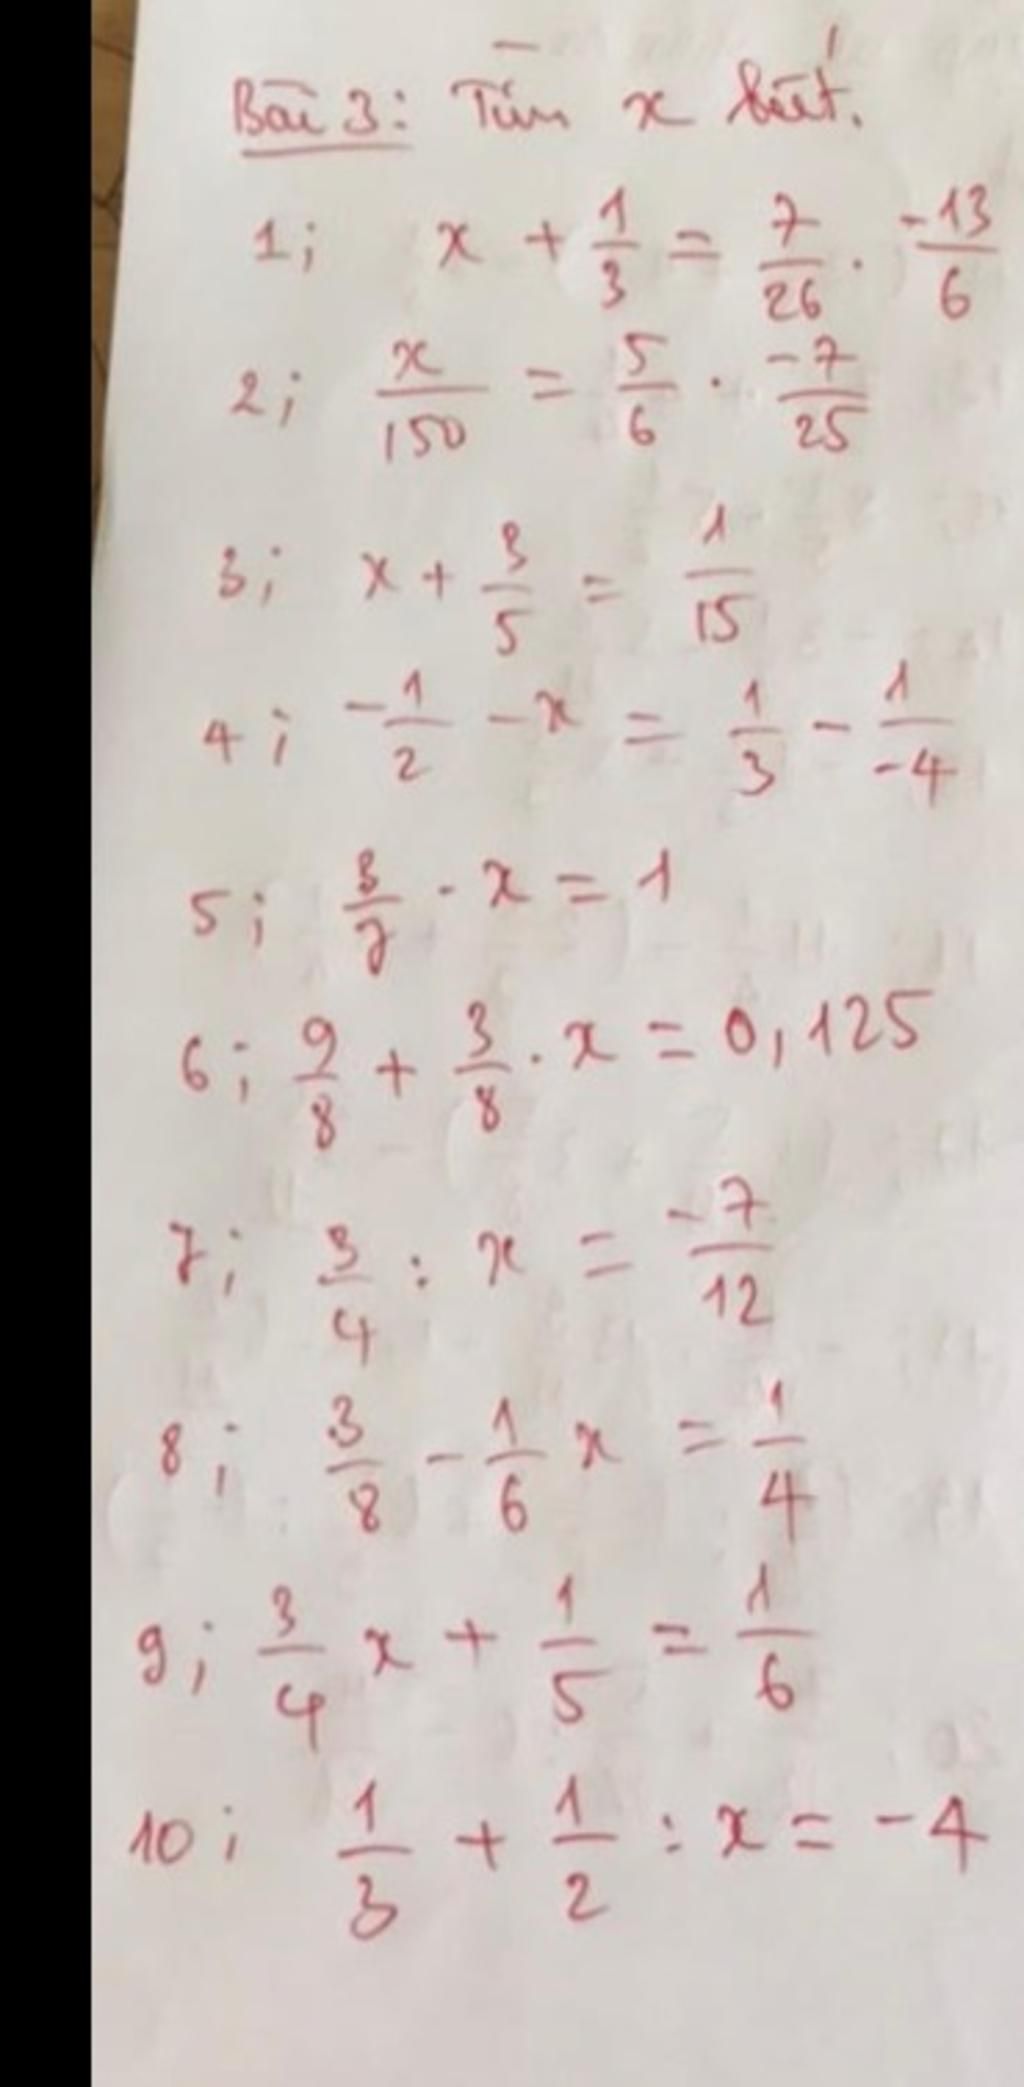 Bài 3: Tìm x biết.
1; x + 1/3 = 7/26 . -13/6
2; x/150 = 5/6 . -7/25
3; x + 3/5 = 1/15
4; -1/2 - x = 1/3 - 1/-4
5; 3/7 . x = 1
6; 9/8 + 3/8 . x = 0,125
7; 3/4 : x = -7/12
8; 3/8 - 1/6 x = 1/4
9; 3/4 x + 1/5 = 1/6
10; 1/3 + 1/2 : x = -4